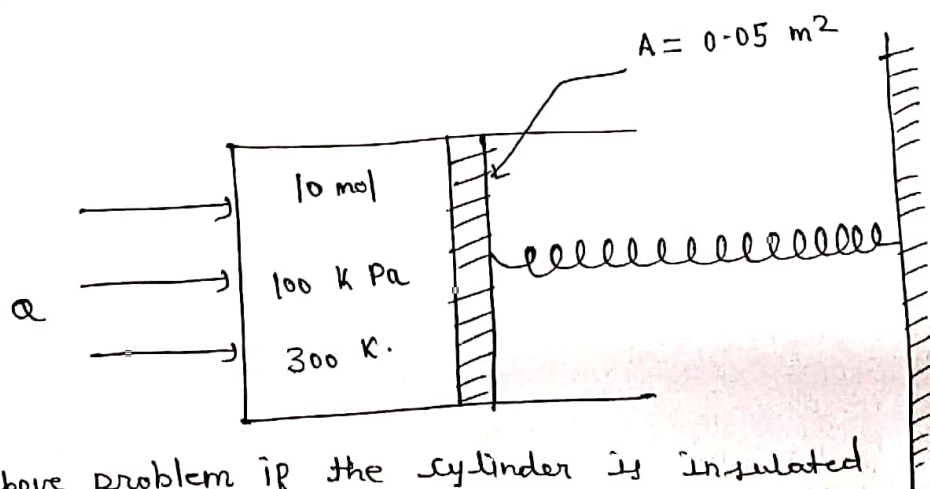 A = 0.05 m²
10 mol
100 K Pa
Q
300 K.
problem if the cylinder is insulated